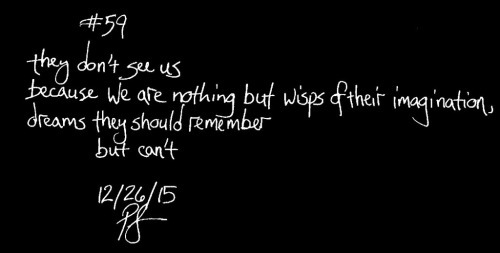 #59
they don't see us
because we are nothing but wisps of their imagination,
dreams they should remember
but can't
12/26/15